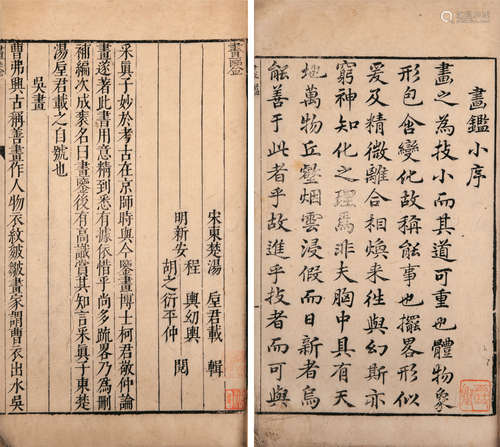 畫鑑小序
畫之為技小而其道可重也體物象
形包含變化故稱能事也擺畧形似
爰及精微離合相煥來徃與幻斯亦
窮神知化之理焉非夫胸中具有天
地萬物丘壑烟雲浸假而日新者烏
能善于此者乎故進乎技者而可與
畫鑒
宋東楚湯垕君載輯
明新安程輿幼輿
胡之衍平仲閱
采真子妙於考古在京師時與今鑒畫博士柯君敬仲論
畫遂著此書用意精到悉有據依惜乎尚多疏畧乃為刪
補編次成袠名曰畫鑒後有高識賞其知言采真子東楚
湯垕君載之自號也
吳畫
曹弗興古稱善畫作人物衣紋皺皺畫家謂曹衣出水吳